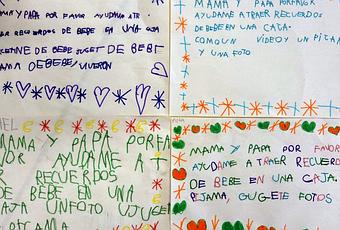 MAMA Y PAPA POR FAVOR AYUDAME ATR
ER RECUERDOS DE BEBE EN UNA CAJA
DE BEBE JUGET DE BEBE
AMA DE BEBE
MAMA Y PAPA PORFAVOR
AYUDAME A TRAER RECUERDOS
DE BEBE EN UNA CAJA.
COMO UN VIDEO Y UN PIJAM
Y UNA FOTO
MAMA Y PAPA PORFA
AYUDAME A T
RECUERDOS
DE BEBE EN UNA
CAJA UN FOTO
MAMA Y PAPA POR FAVOR
AYUDAME A TRAER RECUERD
DE BEBE EN UNA CAJA.
PEJAMA, GUGETE FOTOS